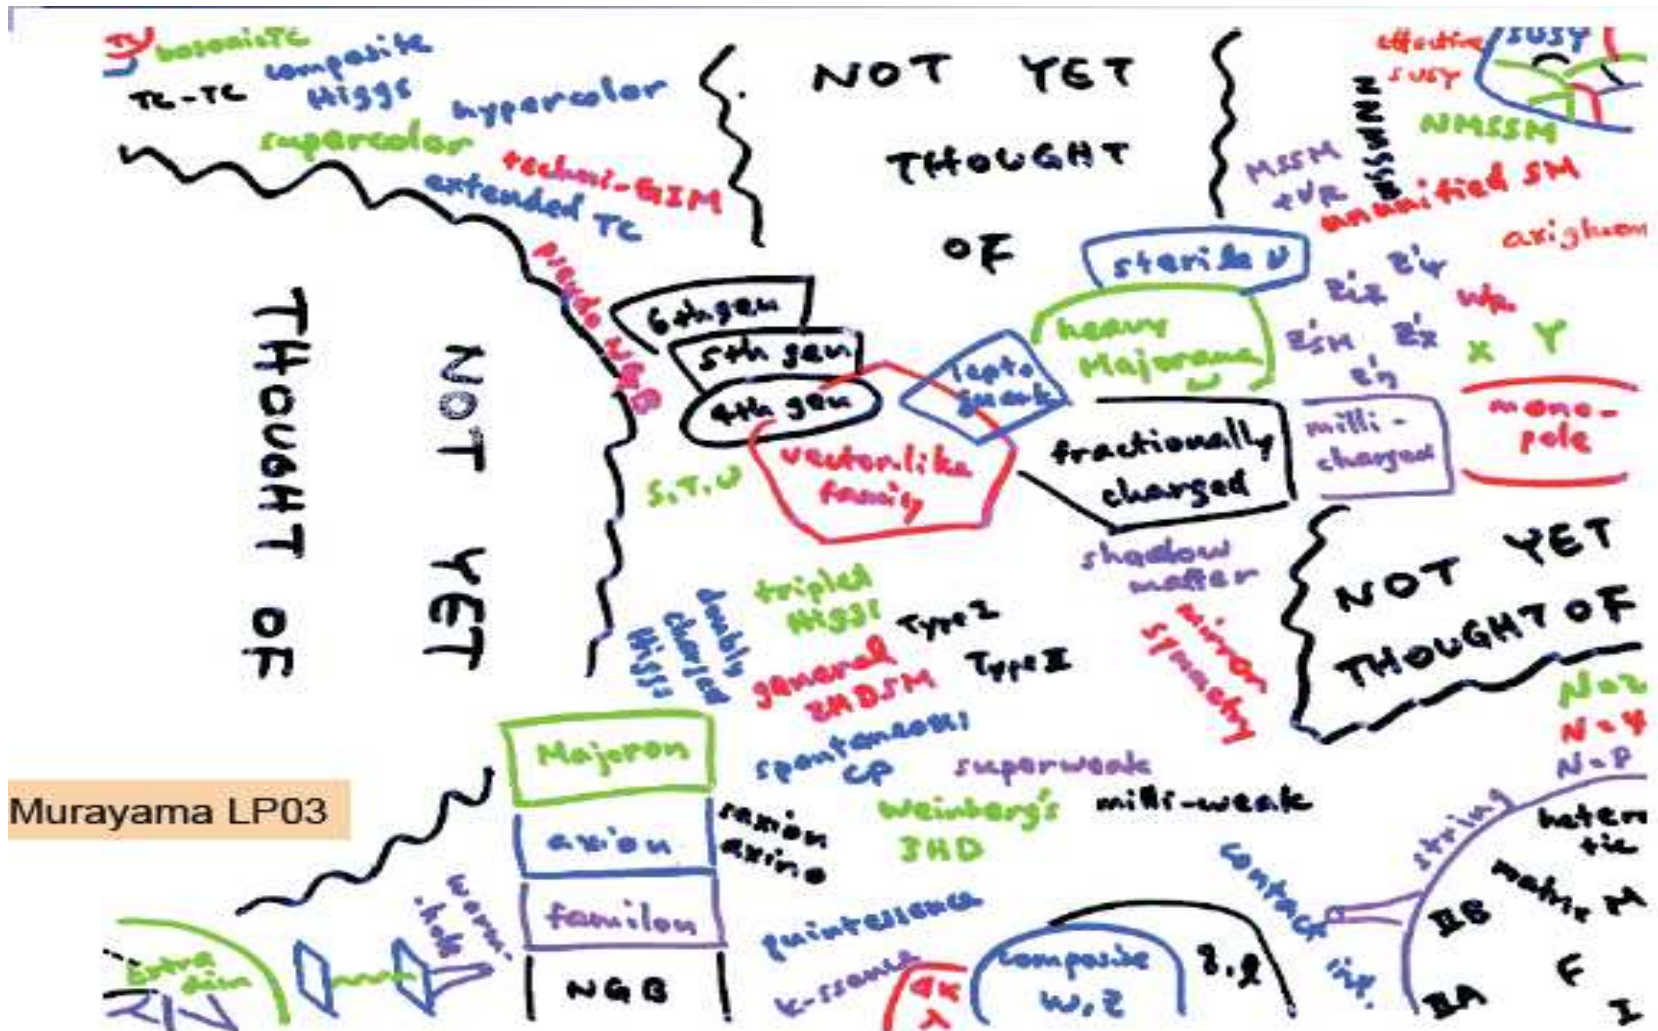 TC
bosonic TC
composite
Higgs
TC-TC
hypercolor
supercolor
techni-GIM
extended TC
pseudo NGB
NOT YET
THOUGHT
OF
effective
SUSY
SUSY
NMSSM
NNMSSM
MSSM
+νR
ununified SM
axigluon
sterile ν
heavy
Majorana
ν
WR
X Y
6th gen
5th gen
4th gen
lepto
quark
vector-like
family
fractionally
charged
milli-
charged
mono-
pole
S,T,U
NOT YET
THOUGHT OF
shadow
matter
mirror
symmetry
NOT YET
THOUGHT OF
triplet
Higgs
doubly
charged
Higgs
Type I
Type II
general
2HDSM
spontaneous
CP
superweak
Weinberg's
3HD
milli-weak
N=2
N=4
N=8
Majoron
axion
saxion
axino
familon
NGB
Murayama LP03
worm
hole
Extra
dim
quintessence
k-ssence
composite
W,Z
q,l
contact
int.
string
heterotic
matrix M
IIB
IIA
F
I